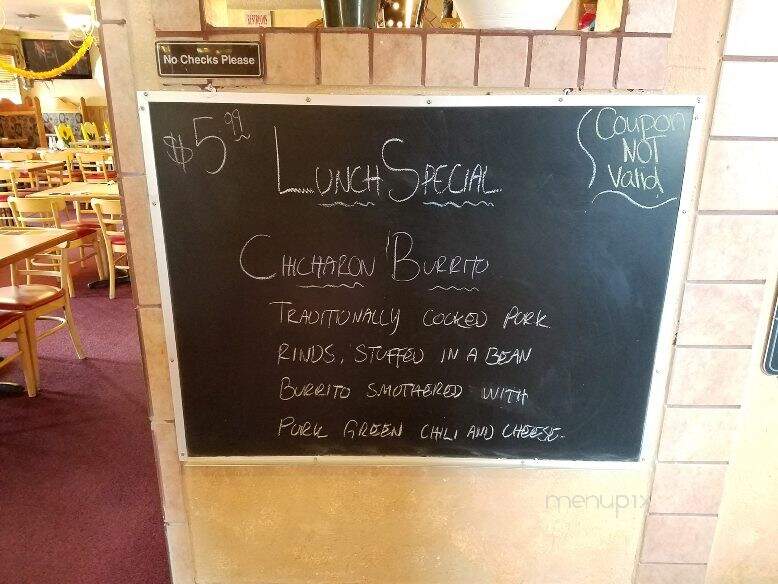 RESTROOMS
No Checks Please
$5.99
LUNCH SPECIAL
Coupon
NOT
Valid
CHICHARON BURRITO
TRADITIONALLY COOKED PORK
RINDS, STUFFED IN A BEAN
BURRITO SMOTHERED WITH
PORK GREEN CHILI AND CHEESE.
menupix